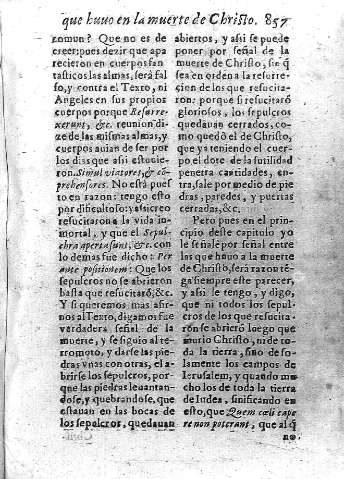 que huuo en la muerte de Christo. 857
comun? Que no es de
creer: pues dezir que apa
recieron en cuerpos fan
tasticos las almas, será fal
so, y contra el Texto, ni
Angeles en sus propios
cuerpos porque Resurre-
xerunt, &c. reunion di-
ze de las mismas almas, y
cuerpos auian de ser por
los dias que assi estuuie
ron. Simul viatores, & cō
prehensores. No está pues
to en razon: tengo esto
por dificultoso: y assi creo
resucitaron a la vida in-
mortal, y que el Sepul-
chra aperta sunt, &c. con
lo demas fue dicho: Per
ante positionem: Que los
sepulcros no se abrieron
hasta que resucitarō, &c.
Y assi para arrimar nos
al Texto, digamos fue
verdadera señal de la
muerte, y se siguio al ter-
remoto, y darse las pie-
dras vnas con otras, el a-
brirse los sepulcros, por-
que las piedras leuantan-
dose, y quebrandose, que
estauan en las bocas de
los sepulcros, quedauan
abiertos, y assi se puede
poner por señal de la
muerte de Christo, sin q̄
sea en orden a la resurre-
çion de los que resucita-
ron: porque si resucitarō
gloriosos, los sepulcros
quedauan cerrados, co-
mo quedó el de Christo,
que ya teniendo el cuer-
po el dote de la sutilidad
penetra cantidades, en-
tra, sale por medio de pie
dras, paredes, y puertas
cerradas, &c.
Pero pues en el princi-
pio deste capitulo yo
le señale por señal entre
las que huuo a la muerte
de Christo, será razon tē-
ga siempre este parecer,
y assi le tengo, y digo,
que ni todos los sepul-
cros de los que resucita-
rón se abrieró luego que
murio Christo, ni de to-
da la tierra, sino de so-
lamente los campos de
Ierusalem, y quando mu
cho los de toda la tierra
de Iudea, sinificando en
esto, que Quem cœli cape
re non poterant, que al q̄
no